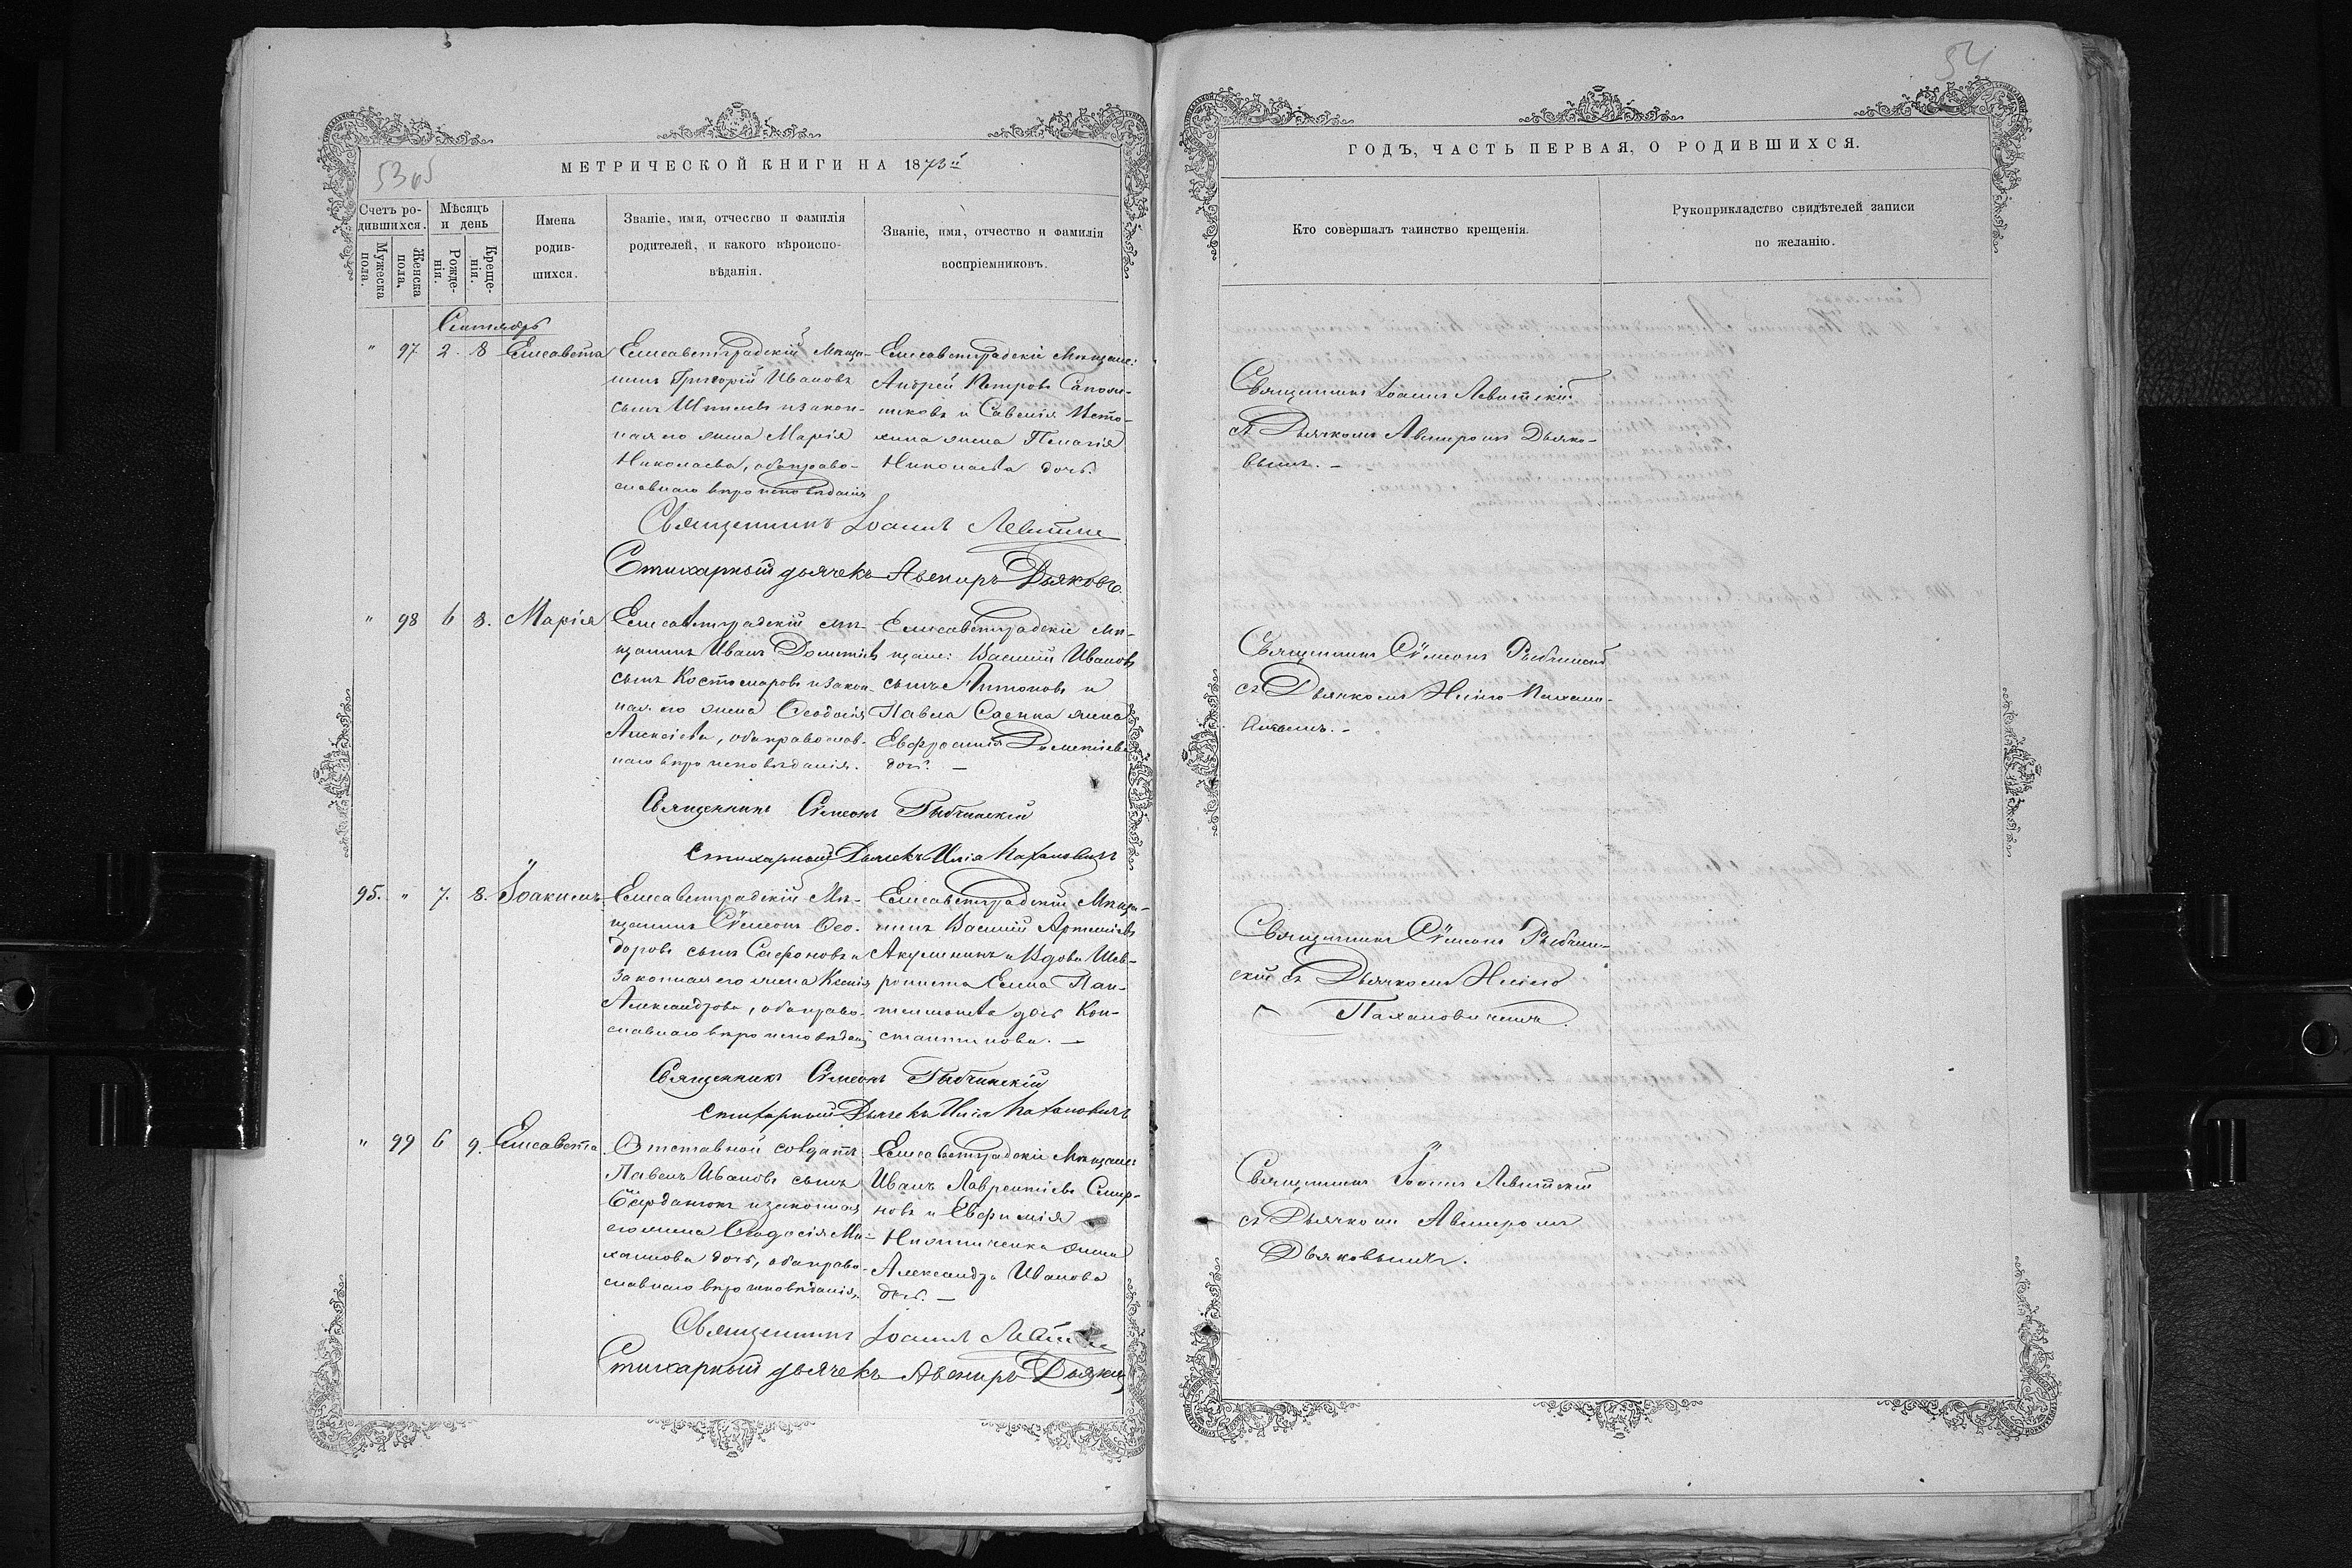 53 об
МЕТРИЧЕСКОЙ КНИГИ НА 1873й
Счетъ ро-
дившихся.
Мужеска
пола.
Женска
пола.
Мѣсяцъ
и день
Рожде-
нія.
Креще-
нія.
Имена
родив-
шихся.
Званіе, имя, отчество и фамилія
родителей, и какого вѣроиспо-
вѣданія.
Званіе, имя, отчество и фамилія
воспріемниковъ.
Сентябрь
" 97 2. 8 Елисавета
Елисаветградскій Мѣща-
нинъ Григорій Ивановъ
сынъ и закон-
ная его жена Марія
Николаева, оба право-
славнаго вѣроисповѣданія
Елисаветградскіе Мѣщане:
Андрей Петровъ Сапож-
никовъ и Савелія
жена Пелагія
Николаева дочь.
Священникъ Іоаннъ Левитскій
Стихарный дьячекъ Авениръ Дьяковъ.
" 98 6 8. Марія
Елисаветградскій мѣ-
щанинъ Иванъ Дометіевъ
сынъ Костомаровъ и закон-
ная его жена Ѳеодосія
Алексѣева, оба православ-
наго вѣроисповѣданія.
Елисаветградскіе мѣ-
щане: Василій Ивановъ
сынъ Антоновъ и
Павла Саенка жена
Евфросинія Дометіева
дочь. –
Священникъ Сѵмеонъ Рыбчинскій
Стихарный Дьячекъ Илія Пахановичъ
95. " 7. 8. Іоакимъ
Елисаветградскій Мѣ-
щанинъ Сѵмеонъ Ѳео-
доровъ сынъ Сафоновъ и
законная его жена Ксенія
Александрова, оба право-
славнаго вѣроисповѣданія
Елисаветградскій Мѣща-
нинъ Василій Артеміевъ
Акушнинъ и Вдова
Елена Пан-
телимонова дочь Кон-
стантинова. –
Священникъ Сѵмеонъ Рыбчинскій
Стихарный Дьячекъ Илія Пахановичъ
" 99 6 9. Елисавета
Отставной солдатъ
Павелъ Ивановъ сынъ
и законная
его жена Ѳеодосія Ми-
хаилова дочь, оба право-
славнаго вѣроисповѣданія.
Елисаветградскіе Мѣщане
Иванъ Лаврентіевъ Смир-
новъ и Евфимія
жена
Александра Иванова
дочь. –
Священникъ Іоаннъ Левитскій
Стихарный дьячекъ Авениръ Дьяковъ
54
ГОДЪ, ЧАСТЬ ПЕРВАЯ, О РОДИВШИХСЯ.
Кто совершалъ таинство крещенія.
Рукоприкладство свидѣтелей записи
по желанію.
Священникъ Іоаннъ Левитскій
съ Дьячкомъ Авениромъ Дьяко-
вымъ. –
Священникъ Сѵмеонъ Рыбчинскій
съ Дьячкомъ Иліею Пахано-
вичемъ. –
Священникъ Сѵмеонъ Рыбчин-
скій съ Дьячкомъ Иліею
Пахановичемъ.
Священникъ Іоаннъ Левитскій
съ Дьячкомъ Авениромъ
Дьяковымъ.